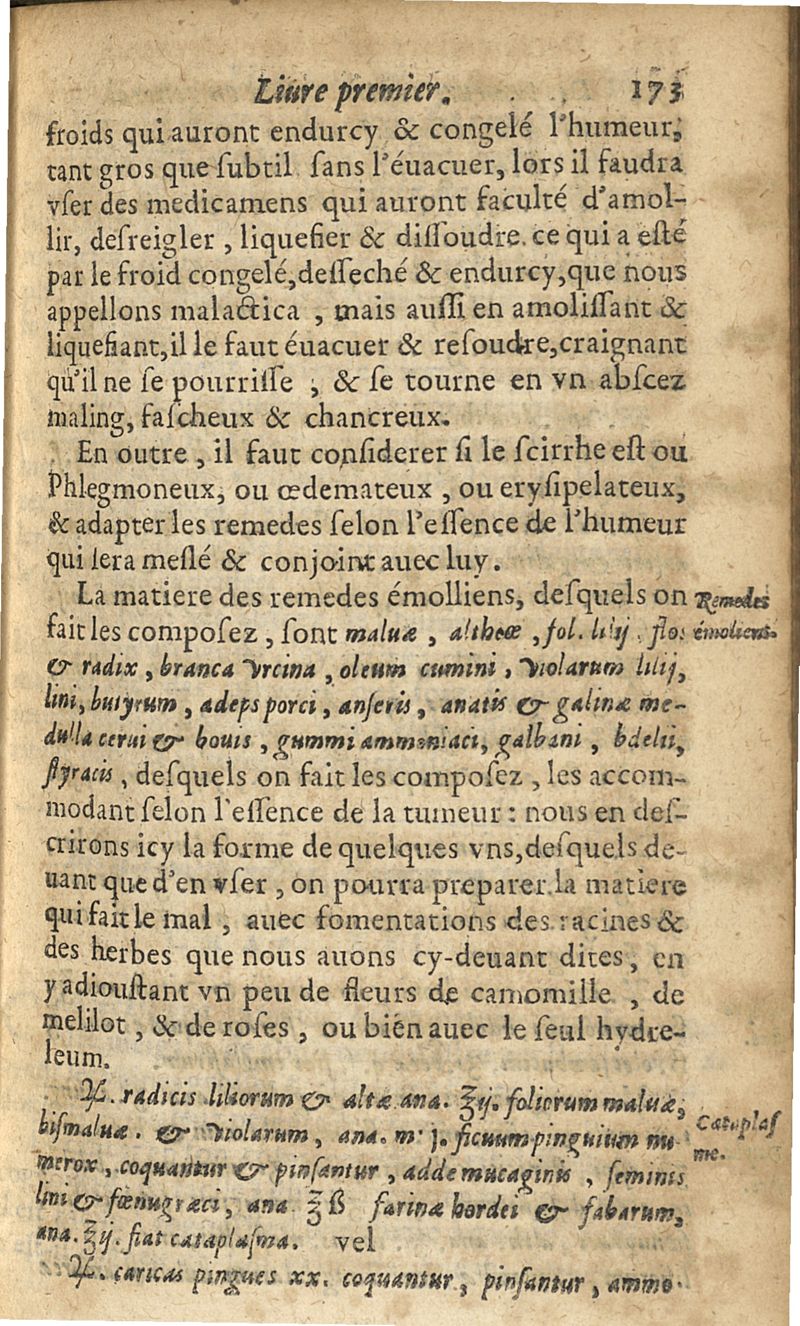 Liure premier. 173
froids qui auront endurcy & congelé l'humeur,
tant gros que ſubtil ſans l'éuacuer, lors il faudra
vſer des medicamens qui auront faculté d'amol-
lir, deſreigler, liquefier & diſſoudre ce qui a eſté
par le froid congelé, deſſeché & endurcy, que nous
appellons malactica, mais auſſi en amoliſſant &
liquefiant, il le faut éuacuer & reſoudre, craignant
qu'il ne ſe pourriſſe, & ſe tourne en vn abſcez
maling, faſcheux & chancreux.
En outre, il faut conſiderer ſi le ſcirrhe eſt ou
Phlegmoneux, ou œdemateux, ou eryſipelateux,
& adapter les remedes ſelon l'eſſence de l'humeur
qui ſera meſlé & conjoint auec luy.
La matiere des remedes émolliens, deſquels on
Remedes
émoliens.
fait les compoſez, ſont maluæ, altheæ, fol. lilij, flos
& radix, branca vrcina, oleum cumini, violarum lilij,
lini, butyrum, adeps porci, anſeris, anatis & galinæ me-
dulla cerui & bouis, gummi ammoniaci, galbani, bdelii,
ſtyracis, deſquels on fait les compoſez, les accom-
modant ſelon l'eſſence de la tumeur: nous en deſ-
crirons icy la forme de quelques vns, deſquels de-
uant que d'en vſer, on pourra preparer la matiere
qui fait le mal, auec fomentations des racines &
des herbes que nous auons cy-deuant dites, en
y adiouſtant vn peu de fleurs de camomille, de
melilot, & de roſes, ou bien auec le ſeul hydre-
leum.
℞. radicis liliorum & altæ ana. ℥ij. foliorum maluæ,
biſmaluæ. & violarum, ana. m. j. ficuum pinguium nu
Cataplaſ
me.
merox, coquantur & pinſantur, adde mucaginis, ſeminis
lini & fœnugræci, ana ℥ ß farinæ hordei & fabarum,
ana. ℥ij. fiat cataplaſma. vel
℞. caricas pingues xx. coquantur, pinſantur, ammo-